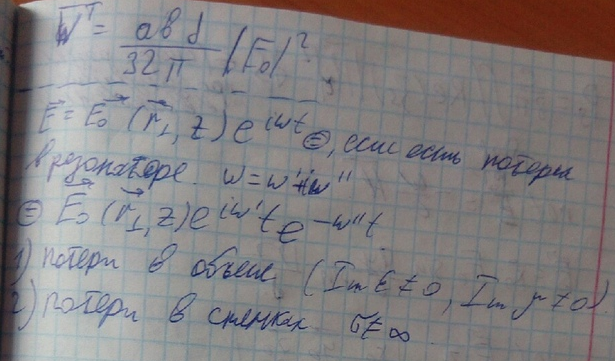 W̅ᵀ = aвd/32π |E₀|².
E⃗ = E⃗₀ (r⃗⊥, z) e^{iωt} ⊜, если есть потери
в резонаторе. ω = ω' + iω''
⊜ E⃗₀ (r⃗⊥, z) e^{iω't} e^{-ω''t}.
1) потери в объеме (Im ε ≠ 0, Im μ ≠ 0)
2) потери в стенках σ ≠ ∞.